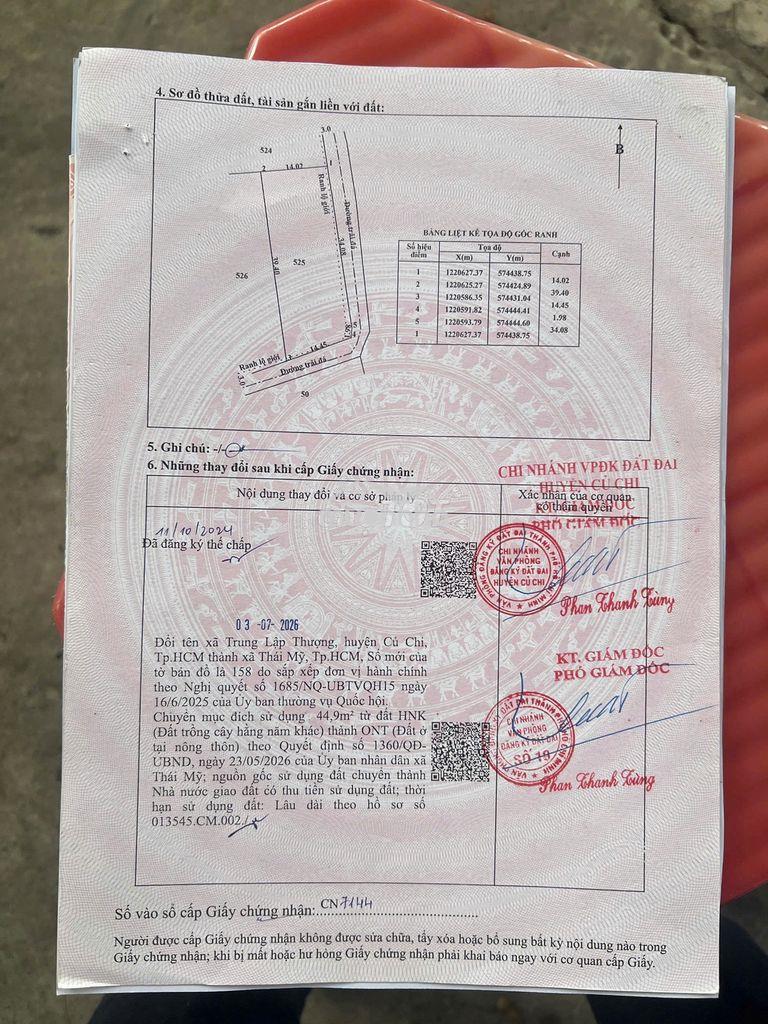 4. Sơ đồ thửa đất, tài sản gắn liền với đất:
B
3.0
524
2
14.02
1
Ranh lộ giới
Đường trải đá
34.08
39.40
525
526
1.98
5
4
3
14.45
Ranh lộ giới
Đường trải đá
3.0
50
BẢNG LIỆT KÊ TỌA ĐỘ GÓC RANH
Số hiệu điểm Tọa độ Cạnh
X(m) Y(m)
1 1220627.37 574438.75
14.02
2 1220625.27 574424.89
39.40
3 1220586.35 574431.04
14.45
4 1220591.82 574444.41
1.98
5 1220593.79 574444.60
34.08
1 1220627.37 574438.75
5. Ghi chú: -/-
6. Những thay đổi sau khi cấp Giấy chứng nhận:
Nội dung thay đổi và cơ sở pháp lý
Xác nhận của cơ quan
có thẩm quyền
CHI NHÁNH VPĐK ĐẤT ĐAI
HUYỆN CỦ CHI
KT. GIÁM ĐỐC
PHÓ GIÁM ĐỐC
11/10/2024
Đã đăng ký thế chấp
VĂN PHÒNG ĐĂNG KÝ ĐẤT ĐAI THÀNH PHỐ HỒ CHÍ MINH
CHI NHÁNH
VĂN PHÒNG
ĐĂNG KÝ ĐẤT ĐAI
HUYỆN CỦ CHI
Phan Thanh Tùng
03 -07- 2026
Đổi tên xã Trung Lập Thượng, huyện Củ Chi,
Tp.HCM thành xã Thái Mỹ, Tp.HCM, Số mới của
tờ bản đồ là 158 do sắp xếp đơn vị hành chính
theo Nghị quyết số 1685/NQ-UBTVQH15 ngày
16/6/2025 của Ủy ban thường vụ Quốc hội.
Chuyển mục đích sử dụng 44,9m² từ đất HNK
(Đất trồng cây hằng năm khác) thành ONT (Đất ở
tại nông thôn) theo Quyết định số 1360/QĐ-
UBND, ngày 23/05/2026 của Ủy ban nhân dân xã
Thái Mỹ; nguồn gốc sử dụng đất chuyển thành
Nhà nước giao đất có thu tiền sử dụng đất; thời
hạn sử dụng đất: Lâu dài theo hồ sơ số
013545.CM.002./.
KT. GIÁM ĐỐC
PHÓ GIÁM ĐỐC
VĂN PHÒNG ĐĂNG KÝ ĐẤT ĐAI THÀNH PHỐ HỒ CHÍ MINH
CHI NHÁNH
VĂN PHÒNG
ĐĂNG KÝ ĐẤT ĐAI
SỐ 19
Phan Thanh Tùng
Số vào sổ cấp Giấy chứng nhận: CN7144
Người được cấp Giấy chứng nhận không được sửa chữa, tẩy xóa hoặc bổ sung bất kỳ nội dung nào trong
Giấy chứng nhận; khi bị mất hoặc hư hỏng Giấy chứng nhận phải khai báo ngay với cơ quan cấp Giấy.